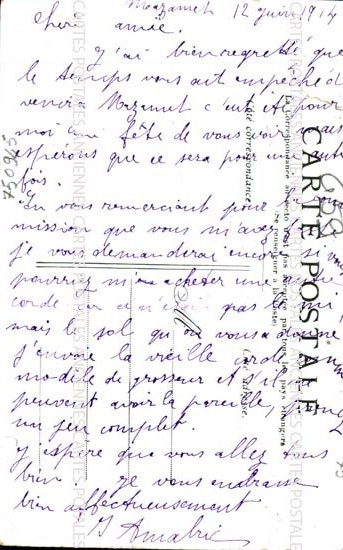 Mazamet 12 juin 1914
Chère amie.
J'ai bien regretté que
le temps vous ait empêché de
venir a Mazamet c'eut été pour
moi une fête de vous voir mais
espérons que ce sera pour une autre
fois.
En vous remerciant pour la
mission que vous m'avez
je vous demanderai encore si vous
pourriez m'acheter une
corde car ce n'est pas le mi
mais le sol qu'on vous a donné
j'envoie la vieille corde comme
modèle de grosseur et s'il
peuvent avoir la pareille,
un jeu complet.
J'espère que vous allez tous
bien je vous embrasse
bien affectueusement
J Amalric
CARTE POSTALE
La correspondance au recto n'est pas acceptée par tous les pays étrangers
(Se renseigner à la Poste)
Côté correspondance
Côté adresse.
750915
CARTES POSTALES ANCIENNES